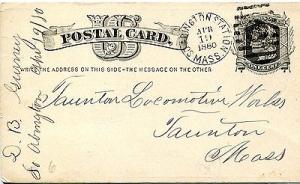 POSTAL CARD.
US
WRITE THE ADDRESS ON THIS SIDE - THE MESSAGE ON THE OTHER
ABINGTON STATION
APR
19
1880
MASS.
Taunton Locomotive Works
Taunton
Mass
D. B. Gurney
So Abington Apr 19/80